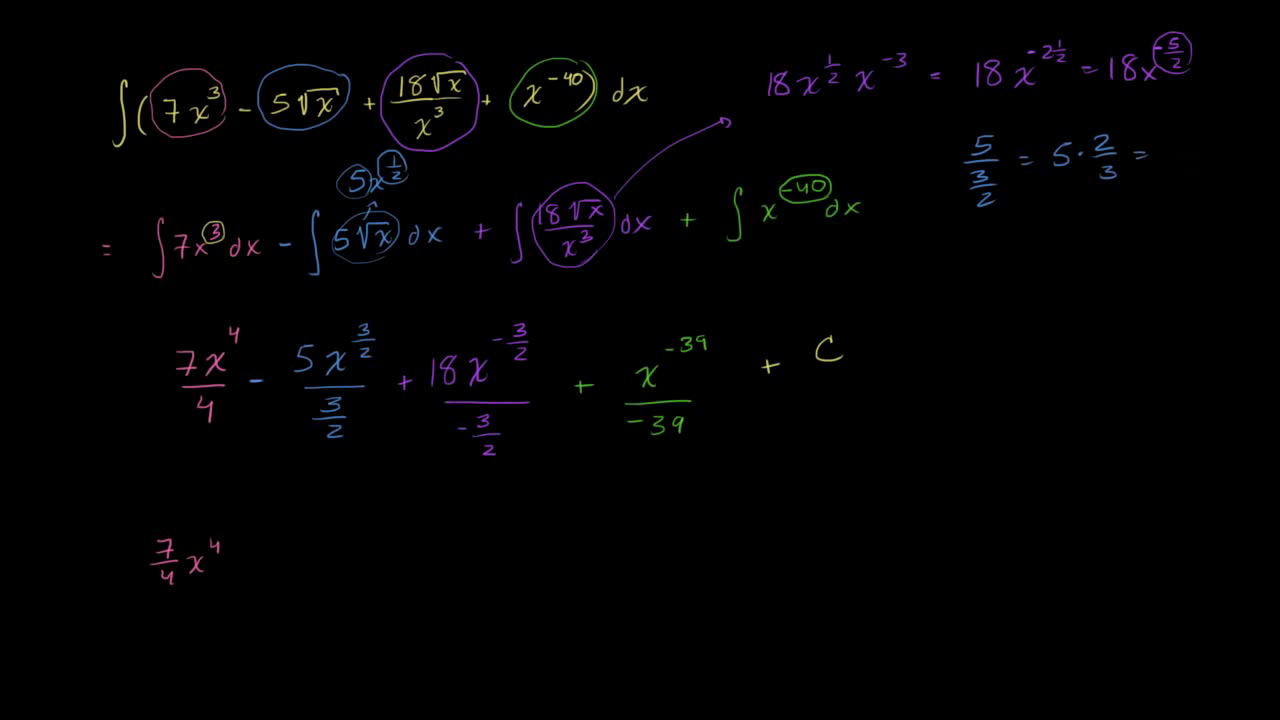 ∫(7x³ - 5√x + 18√x/x³ + x⁻⁴⁰) dx
18x^(1/2) x⁻³ = 18x^(-2 1/2) = 18x^(-5/2)
5/(3/2) = 5 · 2/3 =
5x^(1/2)
= ∫7x³dx - ∫5√x dx + ∫18√x/x³ dx + ∫x⁻⁴⁰dx
7x⁴/4 - 5x^(3/2)/(3/2) + 18x^(-3/2)/(-3/2) + x⁻³⁹/-39 + C
7/4 x⁴